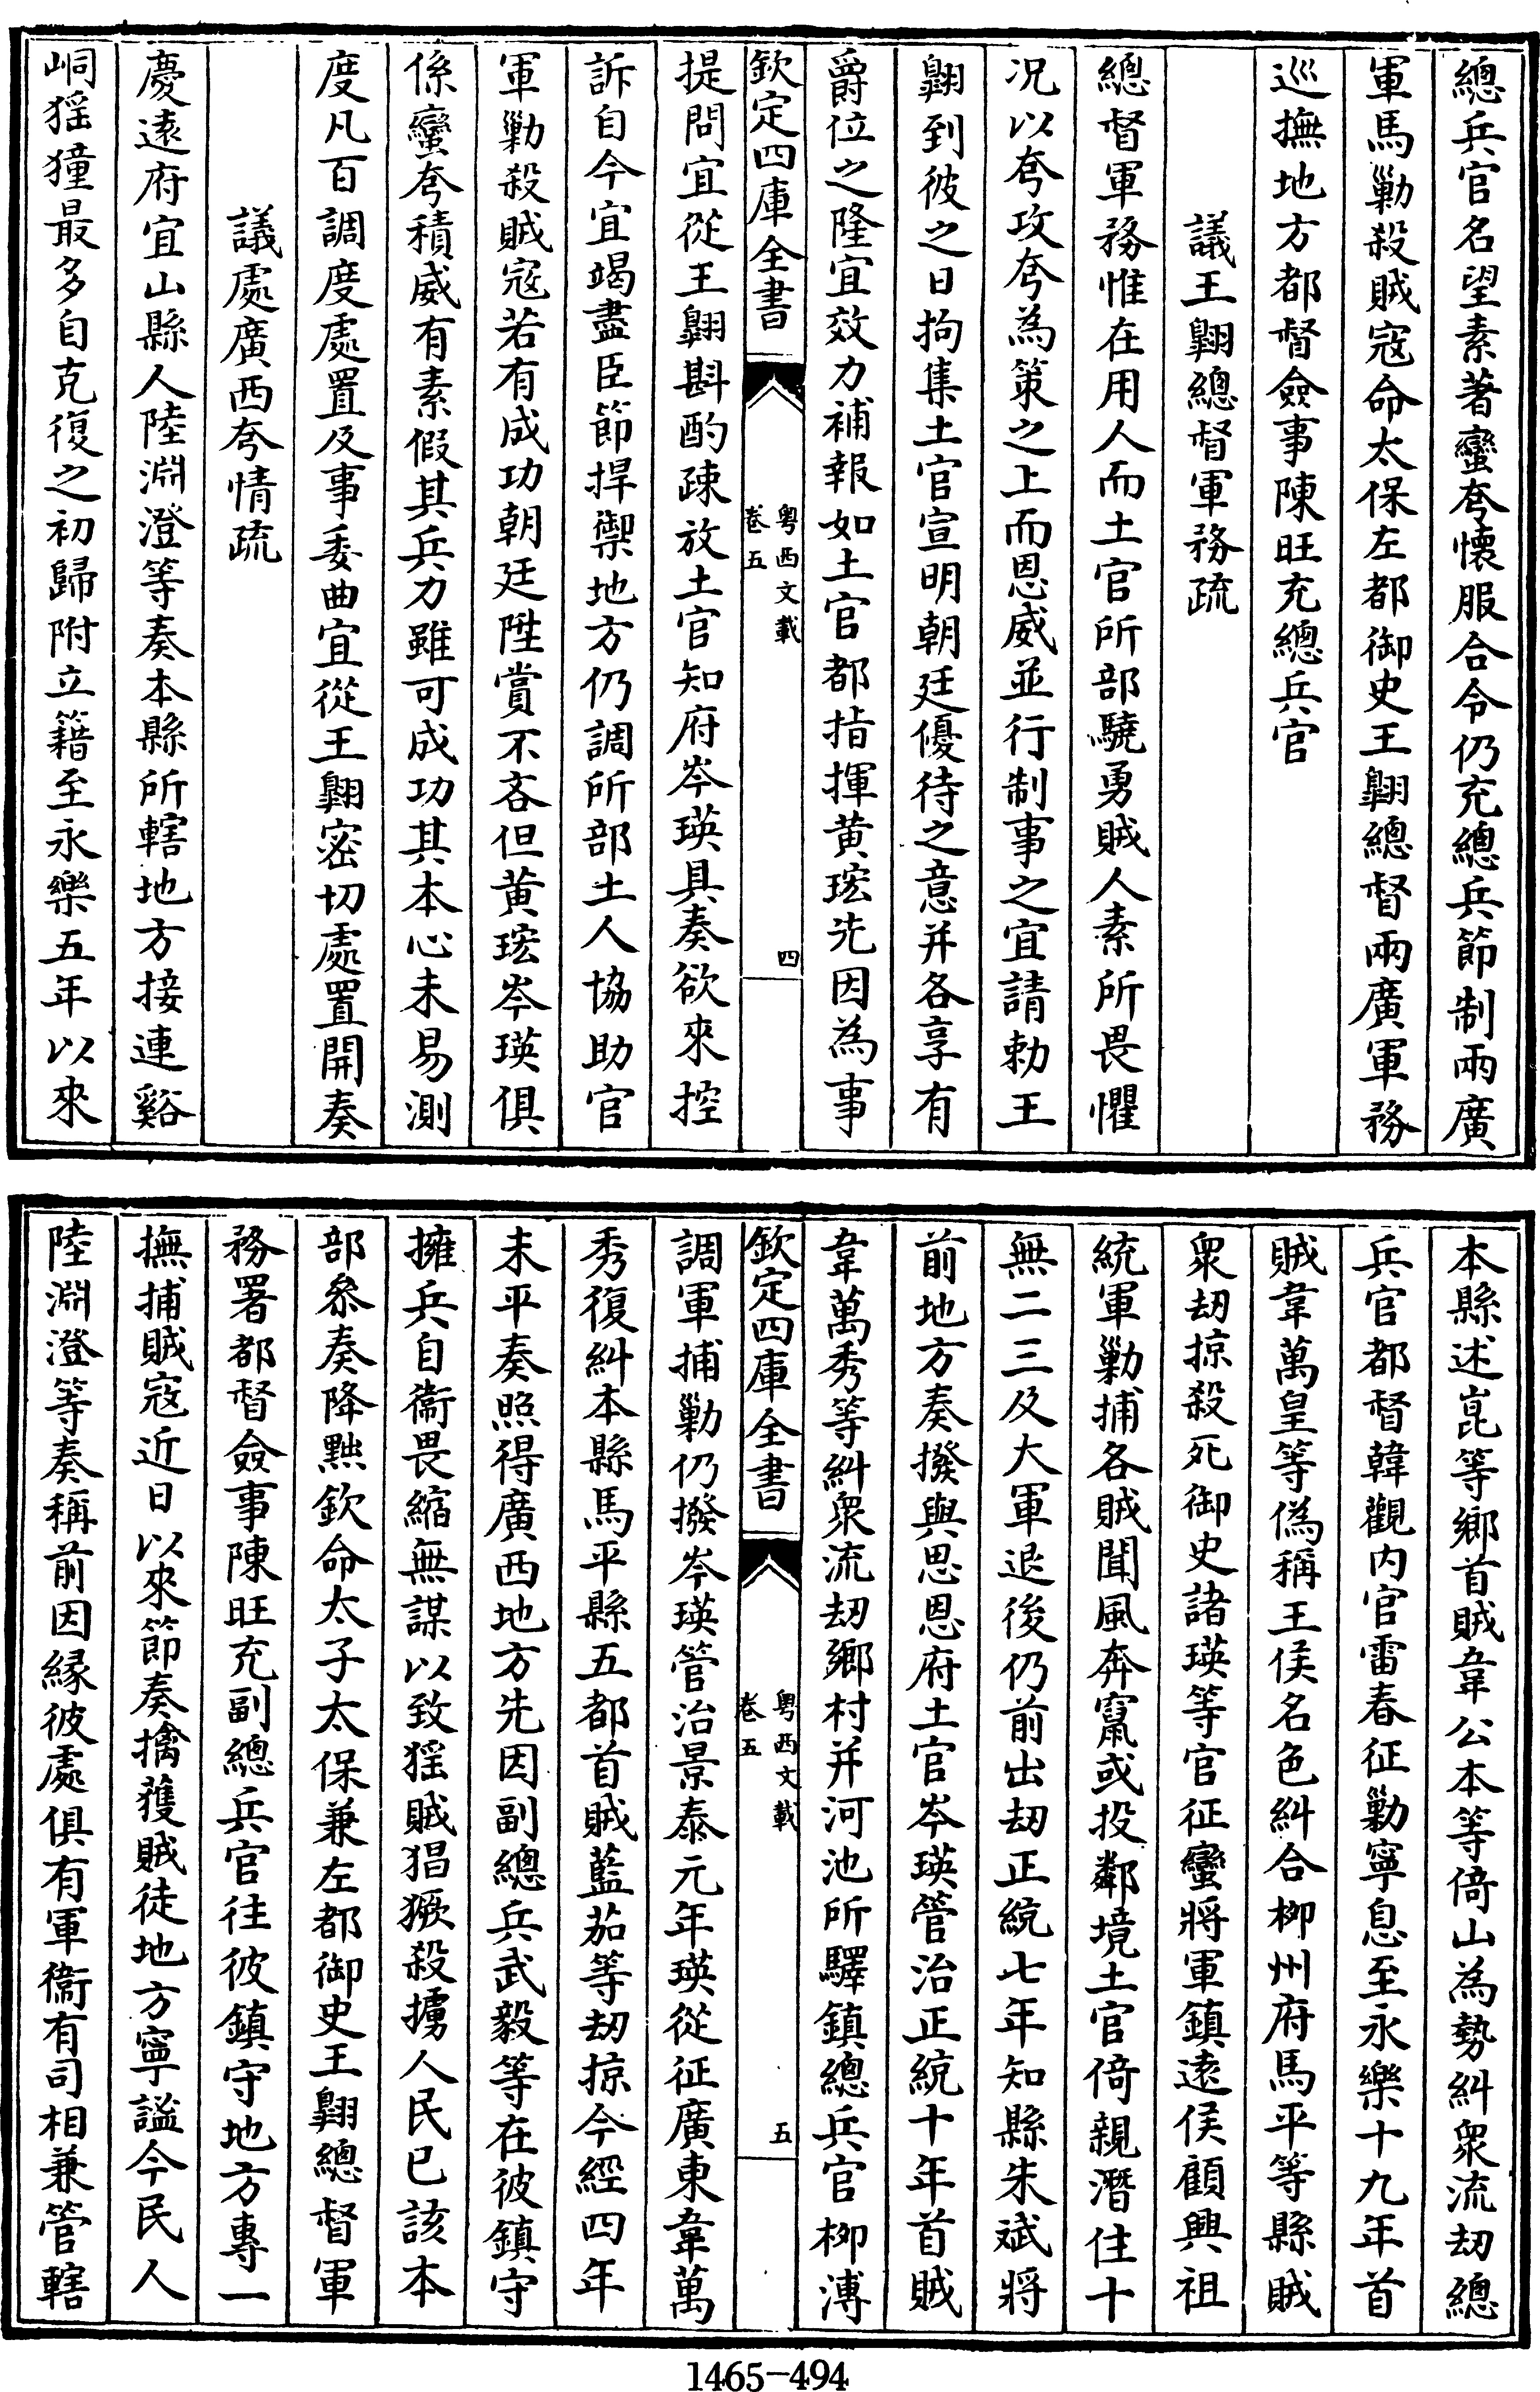 總兵官名望素著蠻夸懷服合令仍充總兵節制兩廣
軍馬勦殺賊寇命太保左都御史王翺總督兩廣軍務
巡撫地方都督僉事陳旺充總兵官
議王翺總督軍務疏
總督軍務惟在用人而土官所部驍勇賊人素所畏懼
况以夸攻夸為策之上而恩威並行制事之宜請勅王
翺到彼之日拘集土官宣明朝廷優待之意并各享有
爵位之隆宜效力補報如土官都指揮黄竤先因為事
欽定四庫全書
粤西文載
卷五
四
提問宜從王翺斟酌疎放土官知府岑瑛具奏欲來控
訴自今宜竭盡臣節捍禦地方仍調所部土人協助官
軍勦殺賊寇若有成功朝廷陞賞不吝但黄竤岑瑛俱
係蠻夸積威有素假其兵力雖可成功其本心未易測
度凡百調度處置及事委曲宜從王翺密切處置開奏
議處廣西夸情疏
慶遠府宜山縣人陸淵澄等奏本縣所轄地方接連谿
峒猺獞最多自克復之初歸附立籍至永樂五年以來
本縣述崑等鄉首賊韋公本等倚山為勢糾衆流刼總
兵官都督韓觀内官雷春征勦寧息至永樂十九年首
賊韋萬皇等偽稱王侯名色糾合栁州府馬平等縣賊
衆刼掠殺死御史諸瑛等官征蠻將軍鎮遠侯顧興祖
統軍勦捕各賊聞風奔竄或投鄰境土官倚親潛住十
無二三及大軍退後仍前出刼正統七年知縣朱斌將
前地方奏撥與思恩府土官岑瑛管治正統十年首賊
韋萬秀等糾衆流刼鄉村并河池所驛鎮總兵官栁溥
欽定四庫全書
粤西文載
卷五
五
調軍捕勦仍撥岑瑛管治景泰元年瑛從征廣東韋萬
秀復糾本縣馬平縣五都首賊藍茄等刼掠今經四年
未平奏照得廣西地方先因副總兵武毅等在彼鎮守
擁兵自衞畏縮無謀以致猺賊猖獗殺擄人民已該本
部叅奏降黜欽命太子太保兼左都御史王翺總督軍
務署都督僉事陳旺充副總兵官往彼鎮守地方專一
撫捕賊寇近日以來節奏擒獲賊徒地方寧謐今民人
陸淵澄等奏稱前因縁彼處俱有軍衞有司相兼管轄
1465-494